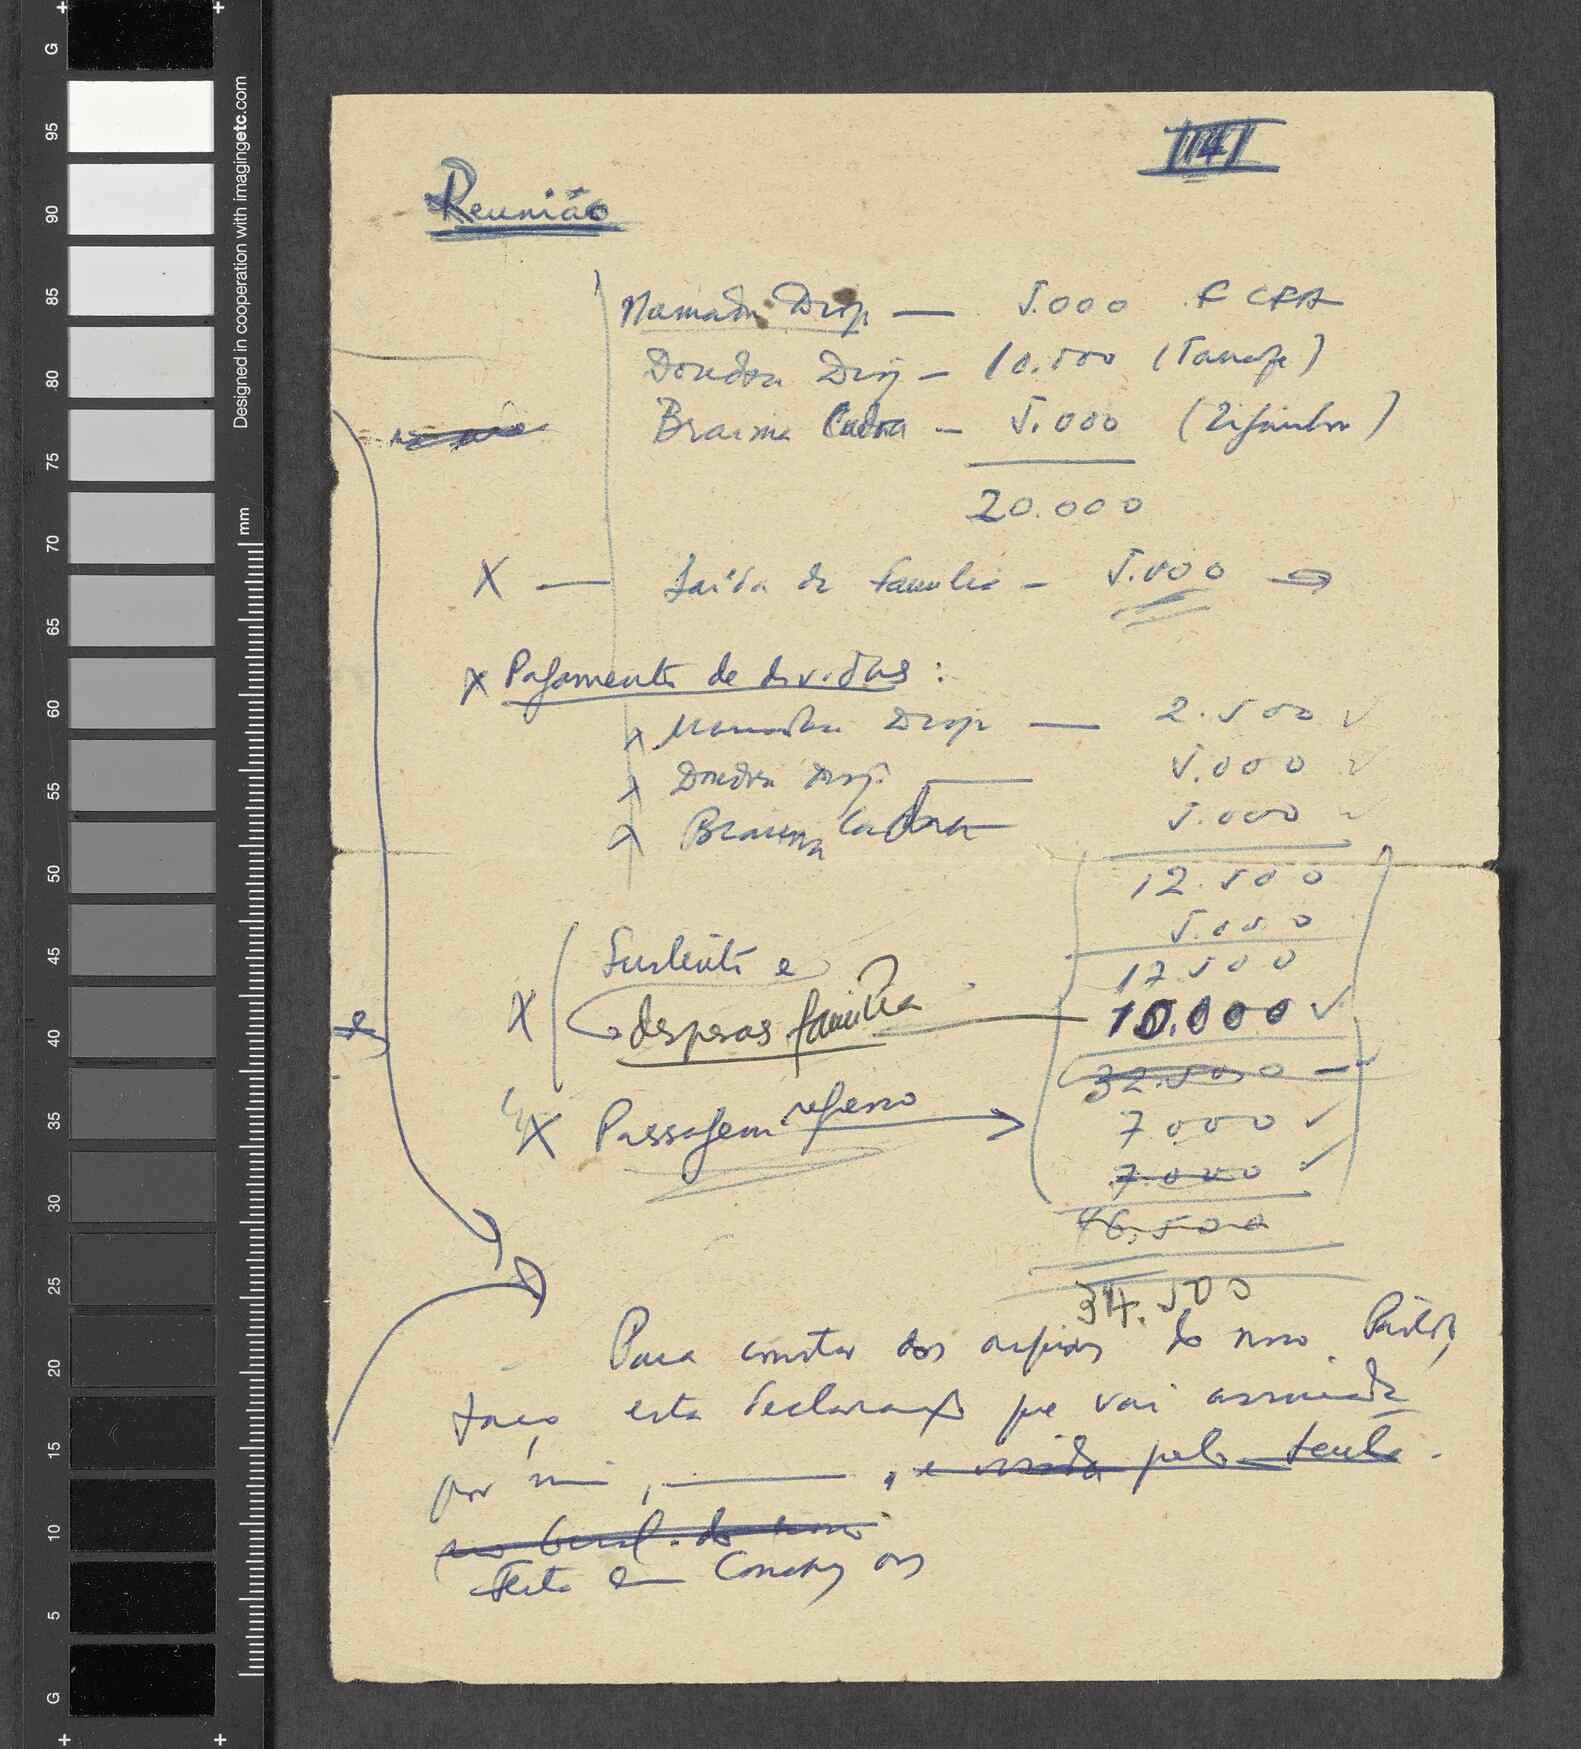 G
95
90
85
80
75
70
65
60
55
50
45
40
35
30
25
20
15
10
5
G
Designed in cooperation with imagingetc.com
mm
Reunião
Mamadu Diop — 5.000 F CFA
Doudou Diop — 10.000 (Tanafe)
Braima Cadra — 5.000
20.000
X — Saída da família — 5.000
X Pagamento de dividas :
X Mamadu Diop — 2.500 ✓
X Doudou Diop — 5.000 ✓
X Braima Cadra — 5.000 ✓
12.500
5.000
17.500
Sustento e
X despesas família — 10.000 ✓
32.500
X Passagem regresso → 7.000 ✓
7.000 ✓
46.500
34.500
Para constar dos arquivos do nosso Partido,
faço esta declaração que vai assinada
por mim, ———, e visada pelo Secretá-
rio Geral do nosso
Feita em Conakry aos